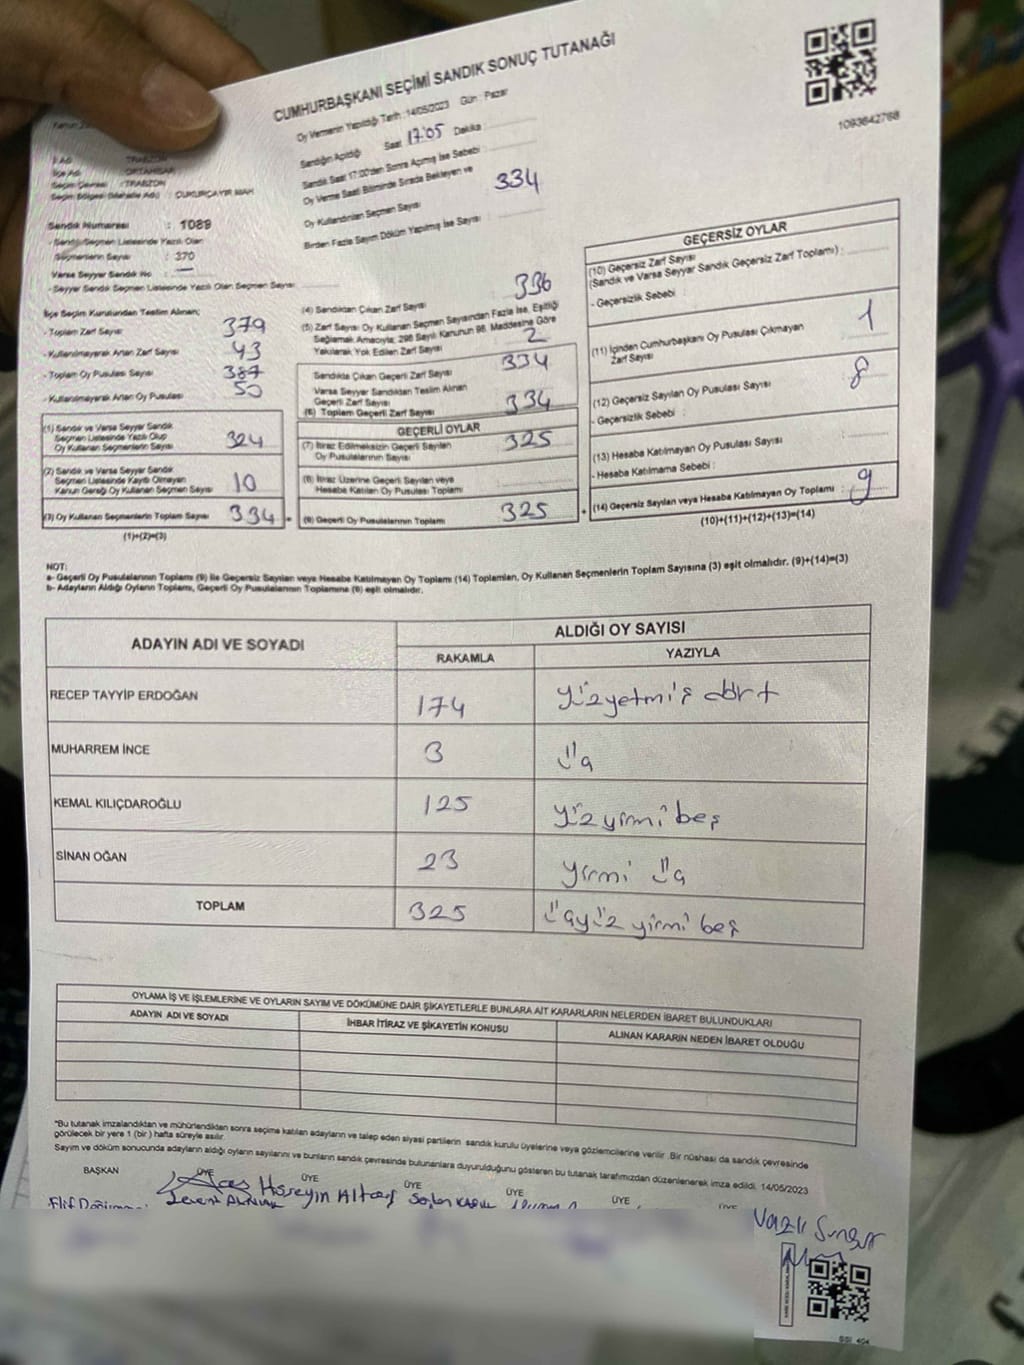 CUMHURBAŞKANI SEÇİMİ SANDIK SONUÇ TUTANAĞI
1093642768
Oy Vermenin Yapıldığı Tarih : 14/05/2023 Gün : Pazar
Sandığın Açıldığı Saat 17:05 Dakika :
Sandık Saat 17:00'den Sonra Açılmış İse Sebebi :
Oy Verme Saati Bitiminde Sırada Bekleyen ve
Oy Kullandırılan Seçmen Sayısı 334
Birden Fazla Sayım Döküm Yapılmış İse Sayısı :
İl Adı : TRABZON
İlçe Adı : ORTAHİSAR
Seçim Çevresi : TRABZON
Seçim Bölgesi (Mahalle Adı) : ÇUKURÇAYIR MAH
Sandık Numarası : 1089
- Sandık Seçmen Listesinde Yazılı Olan
Seçmenlerin Sayısı : 370
Varsa Seyyar Sandık No :
- Seyyar Sandık Seçmen Listesinde Yazılı Olan Seçmen Sayısı:
İlçe Seçim Kurulundan Teslim Alınan;
- Toplam Zarf Sayısı 379
- Kullanılmayarak Artan Zarf Sayısı 43
- Toplam Oy Pusulası Sayısı 387
- Kullanılmayarak Artan Oy Pusulası 50
(1) Sandık ve Varsa Seyyar Sandık
Seçmen Listesinde Yazılı Olup
Oy Kullanan Seçmenlerin Sayısı 324
(2) Sandık ve Varsa Seyyar Sandık
Seçmen Listesinde Kayıtlı Olmayan
Kanun Gereği Oy Kullanan Seçmen Sayısı 10
(3) Oy Kullanan Seçmenlerin Toplam Sayısı 334 =
(1)+(2)=(3)
(4) Sandıktan Çıkan Zarf Sayısı 336
(5) Zarf Sayısı Oy Kullanan Seçmen Sayısından Fazla İse, Eşitliği
Sağlamak Amacıyla; 298 Sayılı Kanunun 98. Maddesine Göre
Yakılarak Yok Edilen Zarf Sayısı 2
Sandıkta Çıkan Geçerli Zarf Sayısı 334
Varsa Seyyar Sandıktan Teslim Alınan
Geçerli Zarf Sayısı
(6) Toplam Geçerli Zarf Sayısı 334
GEÇERLİ OYLAR
(7) İtiraz Edilmeksizin Geçerli Sayılan
Oy Pusulalarının Sayısı 325
(8) İtiraz Üzerine Geçerli Sayılan veya
Hesaba Katılan Oy Pusulası Toplamı
(9) Geçerli Oy Pusulalarının Toplamı 325 +
GEÇERSİZ OYLAR
(10) Geçersiz Zarf Sayısı
(Sandık ve Varsa Seyyar Sandık Geçersiz Zarf Toplamı) :
- Geçersizlik Sebebi :
(11) İçinden Cumhurbaşkanı Oy Pusulası Çıkmayan
Zarf Sayısı 1
(12) Geçersiz Sayılan Oy Pusulası Sayısı 8
- Geçersizlik Sebebi :
(13) Hesaba Katılmayan Oy Pusulası Sayısı
- Hesaba Katılmama Sebebi :
(14) Geçersiz Sayılan veya Hesaba Katılmayan Oy Toplamı 9
(10)+(11)+(12)+(13)=(14)
NOT:
a- Geçerli Oy Pusulalarının Toplamı (9) ile Geçersiz Sayılan veya Hesaba Katılmayan Oy Toplamı (14) Toplamları, Oy Kullanan Seçmenlerin Toplam Sayısına (3) eşit olmalıdır. (9)+(14)=(3)
b- Adayların Aldığı Oyların Toplamı, Geçerli Oy Pusulalarının Toplamına (9) eşit olmalıdır.
ADAYIN ADI VE SOYADI ALDIĞI OY SAYISI
RAKAMLA YAZIYLA
RECEP TAYYİP ERDOĞAN 174 Yüzyetmiş dört
MUHARREM İNCE 3 üç
KEMAL KILIÇDAROĞLU 125 Yüz yirmi beş
SİNAN OĞAN 23 yirmi üç
TOPLAM 325 üçyüz yirmi beş
OYLAMA İŞ VE İŞLEMLERİNE VE OYLARIN SAYIM VE DÖKÜMÜNE DAİR ŞİKAYETLERLE BUNLARA AİT KARARLARIN NELERDEN İBARET BULUNDUKLARI
ADAYIN ADI VE SOYADI İHBAR İTİRAZ VE ŞİKAYETİN KONUSU ALINAN KARARIN NEDEN İBARET OLDUĞU
*Bu tutanak imzalandıktan ve mühürlendikten sonra seçime katılan adayların ve talep eden siyasi partilerin sandık kurulu üyelerine veya gözlemcilerine verilir. Bir nüshası da sandık çevresinde
görülecek bir yere 1 (bir) hafta süreyle asılır.
Sayım ve döküm sonucunda adayların aldığı oyların sayılarını ve bunların sandık çevresinde bulunanlara duyurulduğunu gösteren bu tutanak tarafımızdan düzenlenerek imza edildi. 14/05/2023
BAŞKAN ÜYE ÜYE ÜYE ÜYE ÜYE ÜYE
Elif Hüseyin Altay